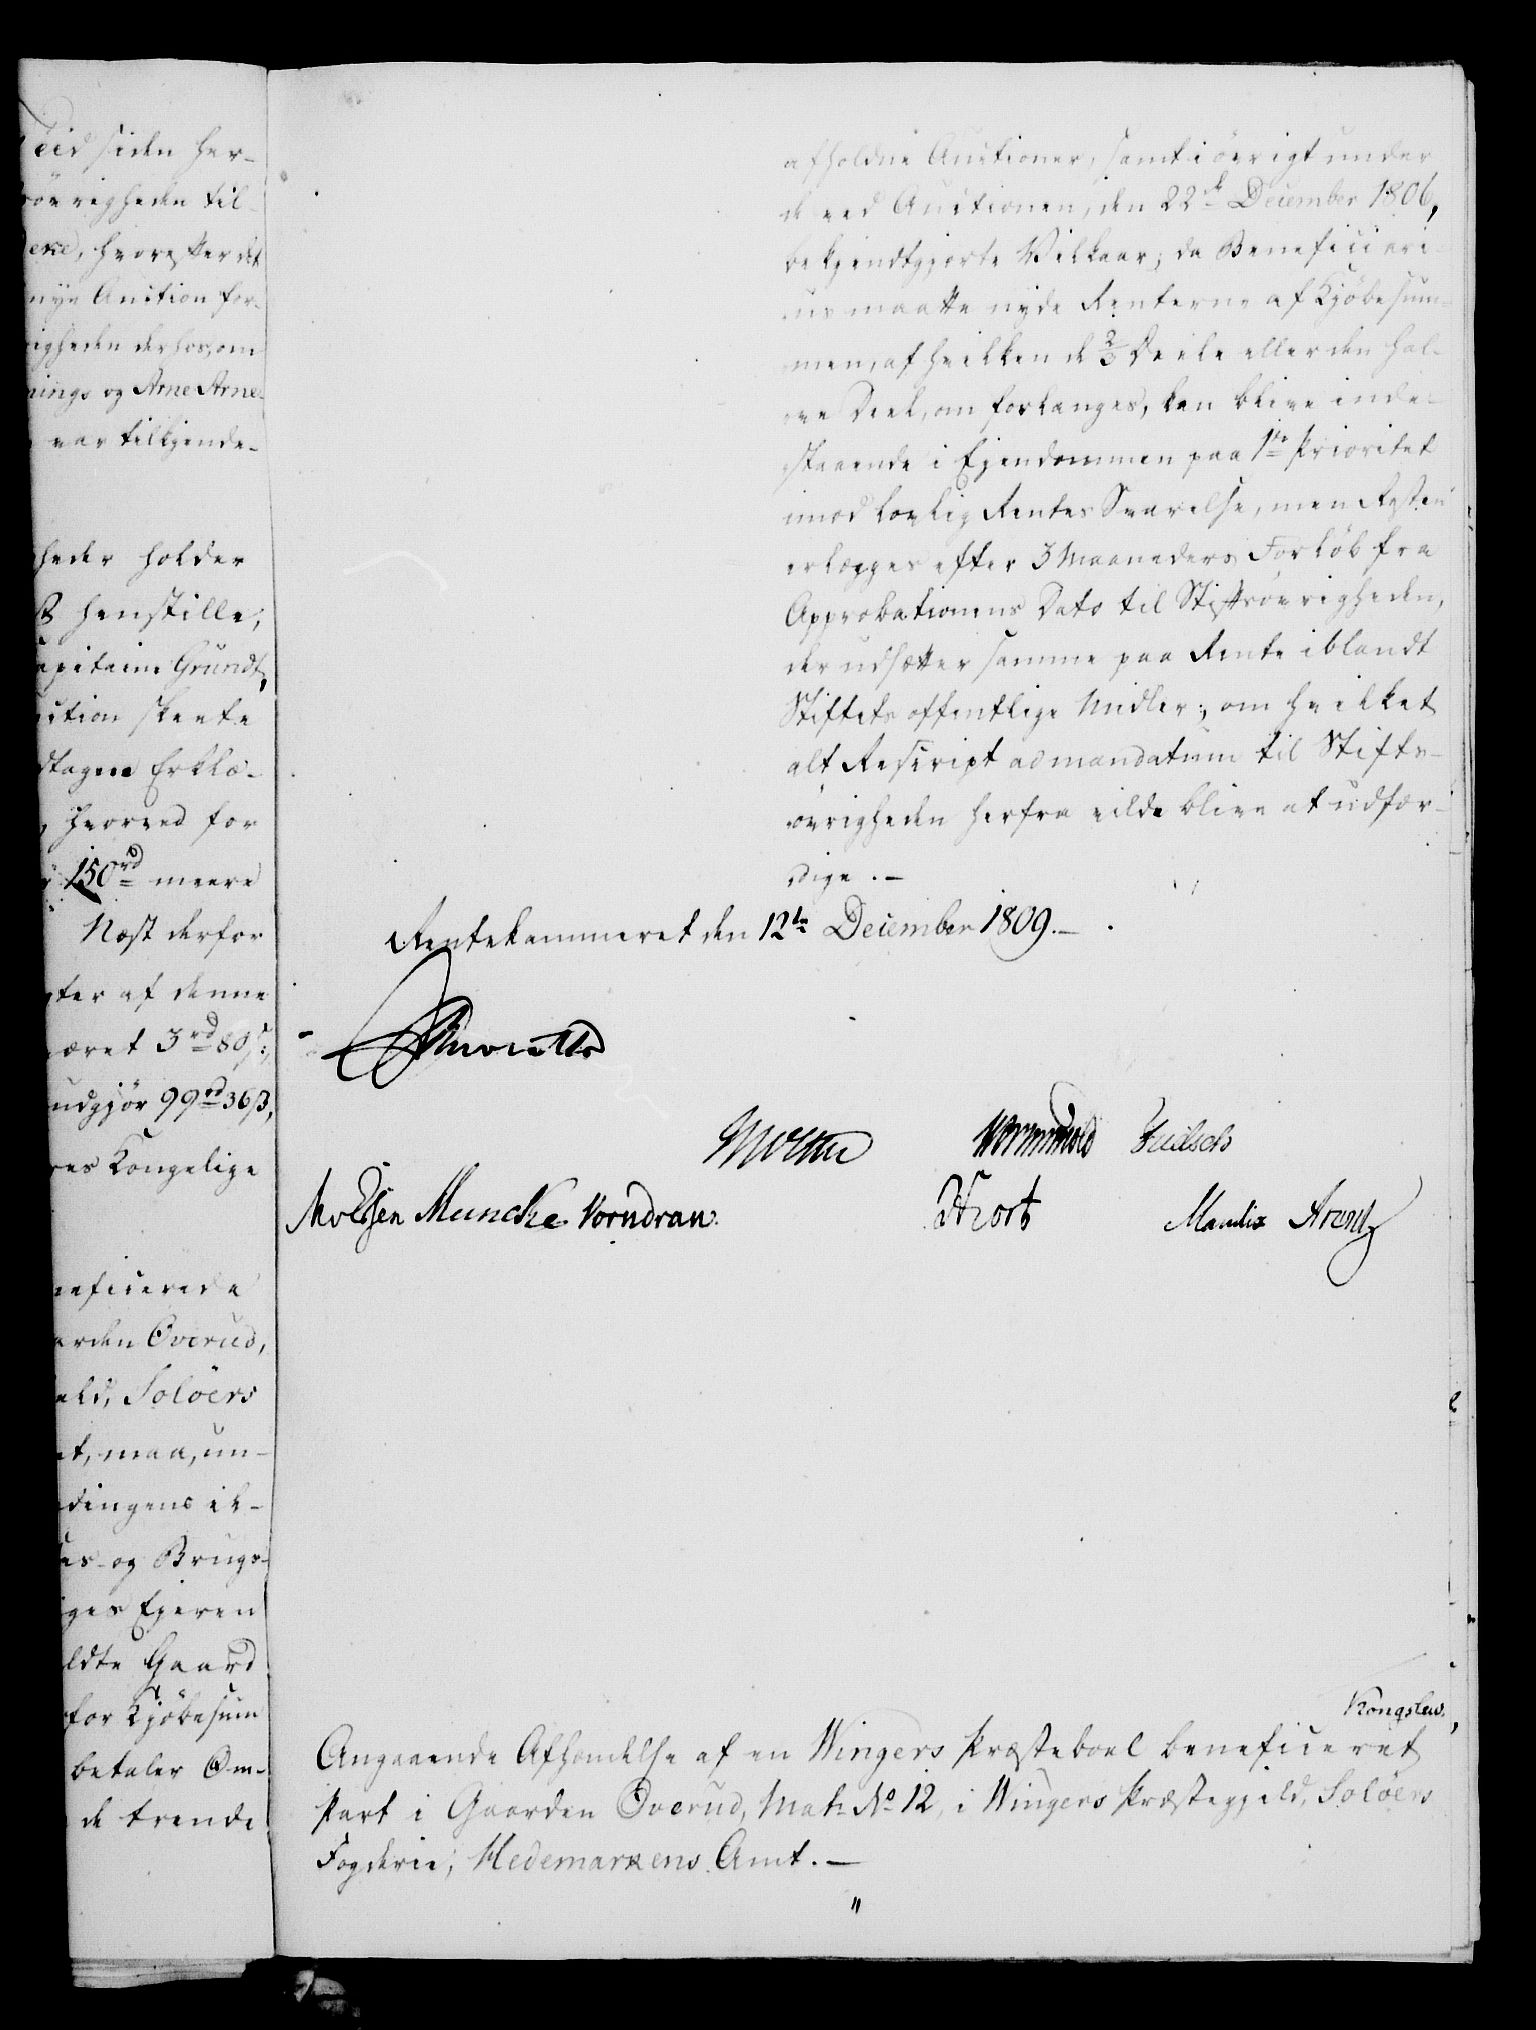 Tiid siden her-
övrigheden til-
hvorefter det
nye Auction for-
righeden derhos, om
nings og Arne Arne-
var tilkjende-
heder holder
henstille,
Capitaine Grundt,
uction skeete
dtagne Erklæ-
, hvorved for
150 rd meere
Næst derfor
gter af denne
været 3 rd 80 s:,
udgjör 99 rd 36 ß,
res Kongelige
neficerede
aarden Overud,
eld, Solöers
et, maa, un-
dingens ik-
es- og Brugs-
iges Ejeren
ldte Gaard
for Kjöbesum
betaler Om-
de trende
afholdne Auctioner, samt i övrigt under
de ved Auctionen, den 22de December 1806,
bekjendtgjorte Vilkaar; da Beneficiari-
us maatte nyde Renterne af Kjöbesum-
men, af hvilken de 2/3 Deele eller den hal-
ve Deel, om forlanges, kan blive inde-
staaende i Ejendommen paa 1te Prioritet
imod lovlig Rentes Svarelse, men Resten
erlægges efter 3 Maaneders Forlöb fra
Approbationens Dato til Stiftsövrigheden,
der udsætter samme paa Rente iblandt
Stiftets offentlige Midler:, om hvilket
alt Rescript ad mandatum til Stifts-
övrigheden herfra vilde blive at udfær-
dige. -
Rentekammeret den 12te December 1809. -
Moltke Wormskiold
Muncke Vorndran.
Mandix Arentz
Kongslew.
Angaaende Afhændelse af en Wingers Præsteboel beneficeret
Part i Gaarden Overud, Matr. No 12, i Wingers Præstegjeld, Solöers
Fogderie, Hedemarkens Amt. -
"